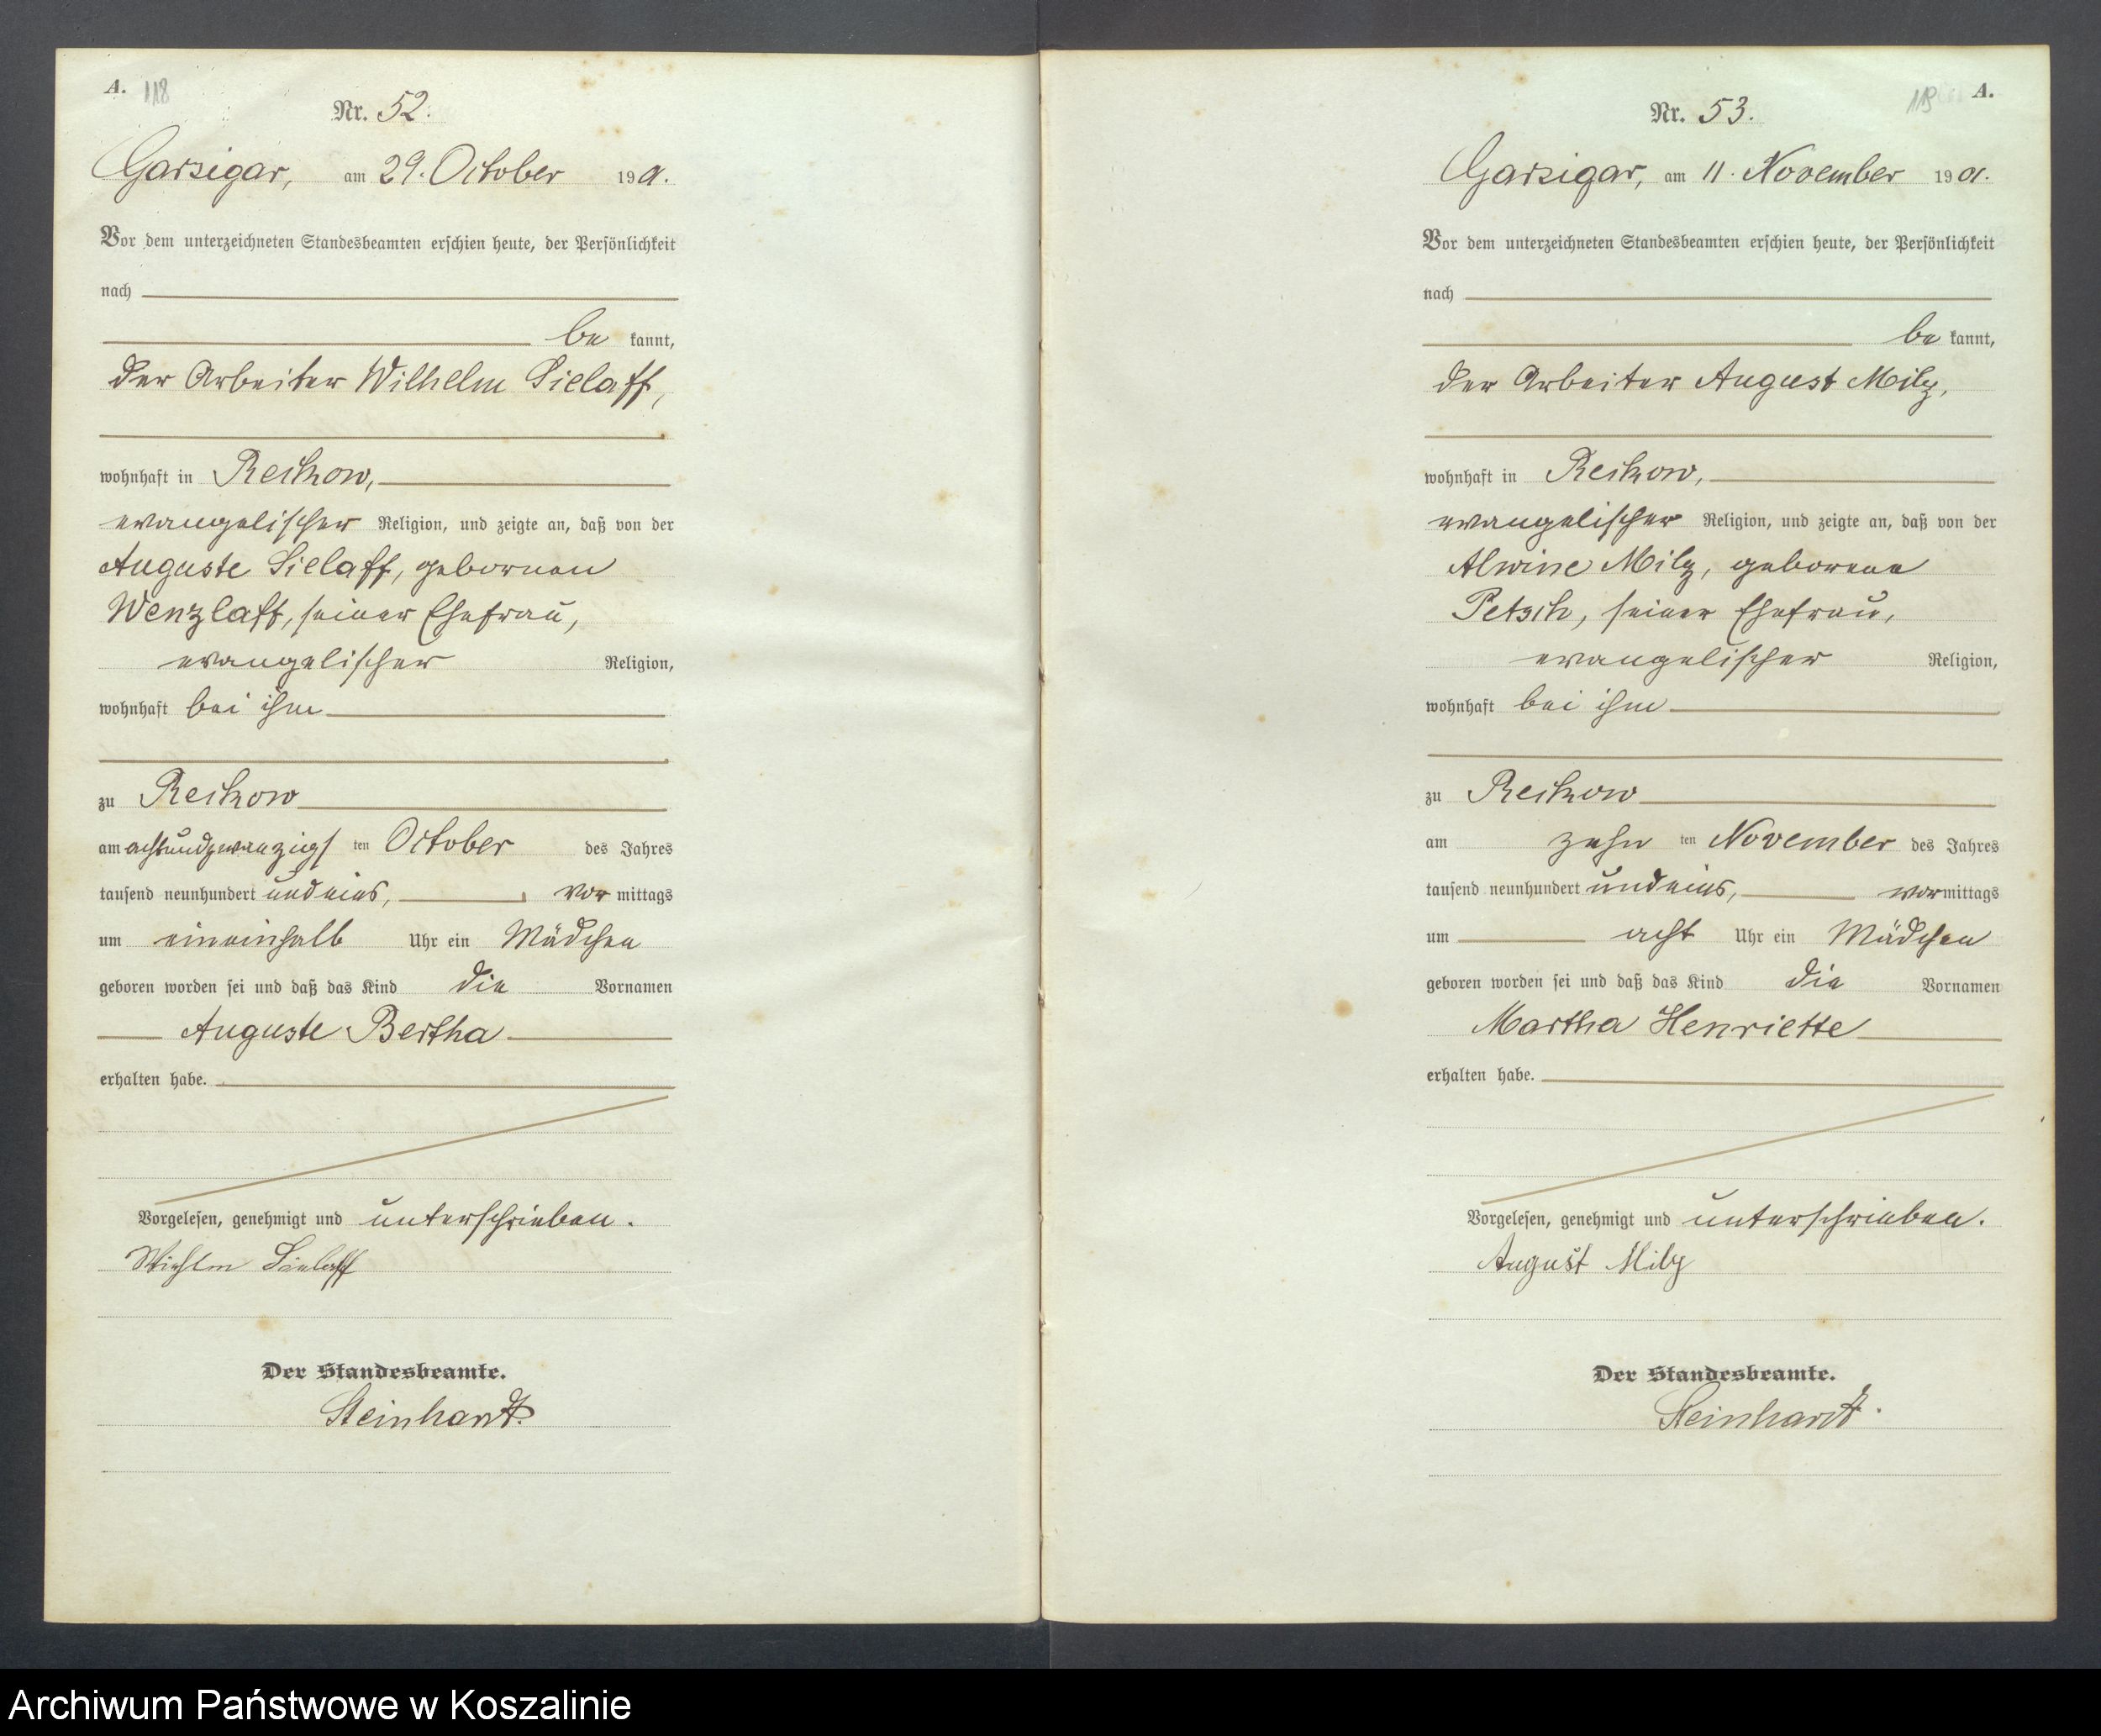 A. 118
Nr. 52.
Garzigar, am 29. October 1901.
Vor dem unterzeichneten Standesbeamten erschien heute, der Persönlichkeit
nach
be kannt,
der Arbeiter Wilhelm Sielaff,
wohnhaft in Reckow,
evangelischer Religion, und zeigte an, daß von der
Auguste Sielaff, gebornen
Wenzlaff, seiner Ehefrau,
evangelischer Religion,
wohnhaft bei ihm
zu Reckow
am achtundzwanzigs ten October des Jahres
tausend neunhundert undeins, vor mittags
um eineinhalb Uhr ein Mädchen
geboren worden sei und daß das Kind die Vornamen
Auguste Bertha
erhalten habe.
Vorgelesen, genehmigt und unterschrieben.
Wilhelm Sielaff
Der Standesbeamte.
Steinhardt.
119 A.
Nr. 53.
Garzigar, am 11. November 1901.
Vor dem unterzeichneten Standesbeamten erschien heute, der Persönlichkeit
nach
be kannt,
der Arbeiter August Milz,
wohnhaft in Reckow,
evangelischer Religion, und zeigte an, daß von der
Alwine Milz, geborene
Petsch, seiner Ehefrau,
evangelischer Religion,
wohnhaft bei ihm
zu Reckow
am zehn ten November des Jahres
tausend neunhundert undeins, vor mittags
um acht Uhr ein Mädchen
geboren worden sei und daß das Kind die Vornamen
Martha Henriette
erhalten habe.
Vorgelesen, genehmigt und unterschrieben.
August Milz
Der Standesbeamte.
Steinhardt.
Archiwum Państwowe w Koszalinie